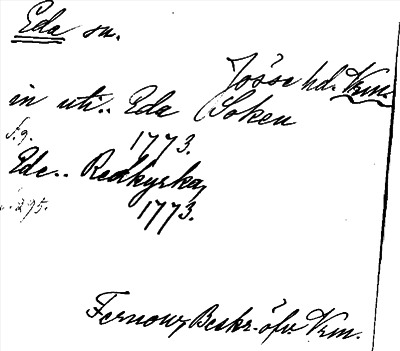 Eda sn.
Jösse hd. Vrm.
in uti.. Eda Soken
s. 9. 1773.
Ede.. Redkyrka,
s. 295. 1773.
Fernow, Beskr. öfv. Vrm.